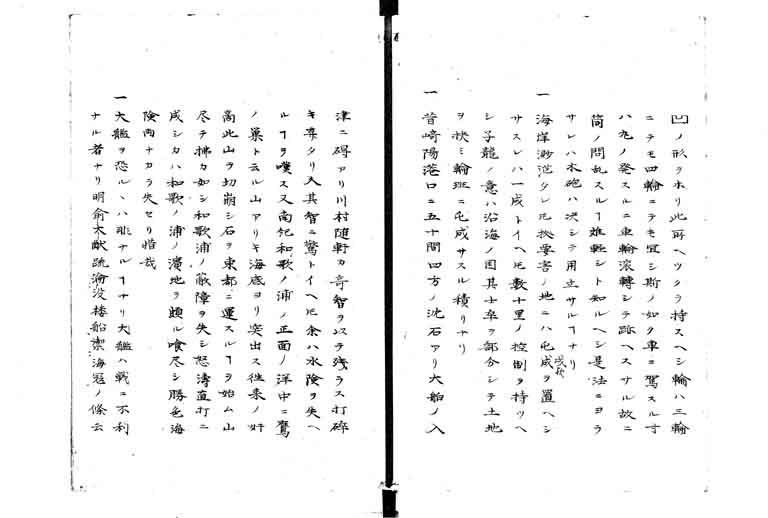 凹ノ形ヲホリ此所ヘツクラ持スヘシ輪ハ三輪
ニテモ四輪ニテモ宜シ斯ノ如ク車ニ駕スル寸
ハ丸ノ発スルニ車輪滾轉シテ跡ヘスサル故ニ
筒ノ問乱スルヿ雄軽シト知ルヘシ是法ニヨラ
サレハ木砲ハ决シテ用立サルヿナリ
一 海岸渺茫タレ𪜈挾要害ノ地ニハ屯戍ヲ置ヘシ
サスレハ一戍トイヘ𪜈數十里ノ控制ヲ持ツヘ
シ子龍ノ意ハ沿海ノ国其士卒ヲ部分シテ土地
ヲ挾ミ輪班ニ屯戍サスル積リナリ
一 昔崎陽港口ニ五十間四方ノ沈石アリ大船ノ入
津ニ碍アリ川村随軒カ竒智ヲ以テ残ラス打碎
キ尋タリ人其智ニ驚トイヘ𪜈余ハ水険ヲ失ヘ
ルヿヲ嘆ス又南紀和歌ノ浦ノ正面ノ洋中ニ鷹
ノ巣ト云ル山アリキ海底ヨリ突出ス往来ノ奸
商此山ヲ切崩シ石ヲ東都ニ運スルヿヲ始ム山
尽テ拂カ如シ和歌浦ノ蔽障ヲ失シ怒濤直打ニ
成シカハ和歌ノ浦ノ濱地ヲ頗ル喰尽シ勝色海
険両ナカラ失セリ惜哉
一 大艦ヲ恐ルヽハ非ナルヿナリ大艦ハ戦ニ不利
ナル者ナリ明兪大猷疏淪没楼船禦海冦ノ條云